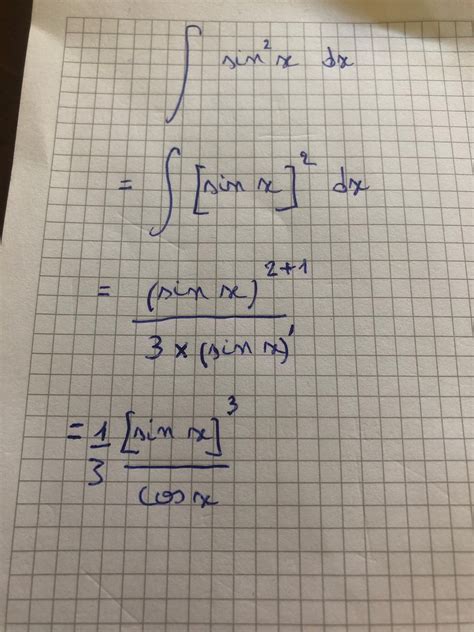 ∫ sin²x dx
= ∫ [sin x]² dx
= (sin x)²⁺¹ / 3 × (sin x)'
= 1/3 [sin x]³ / cos x